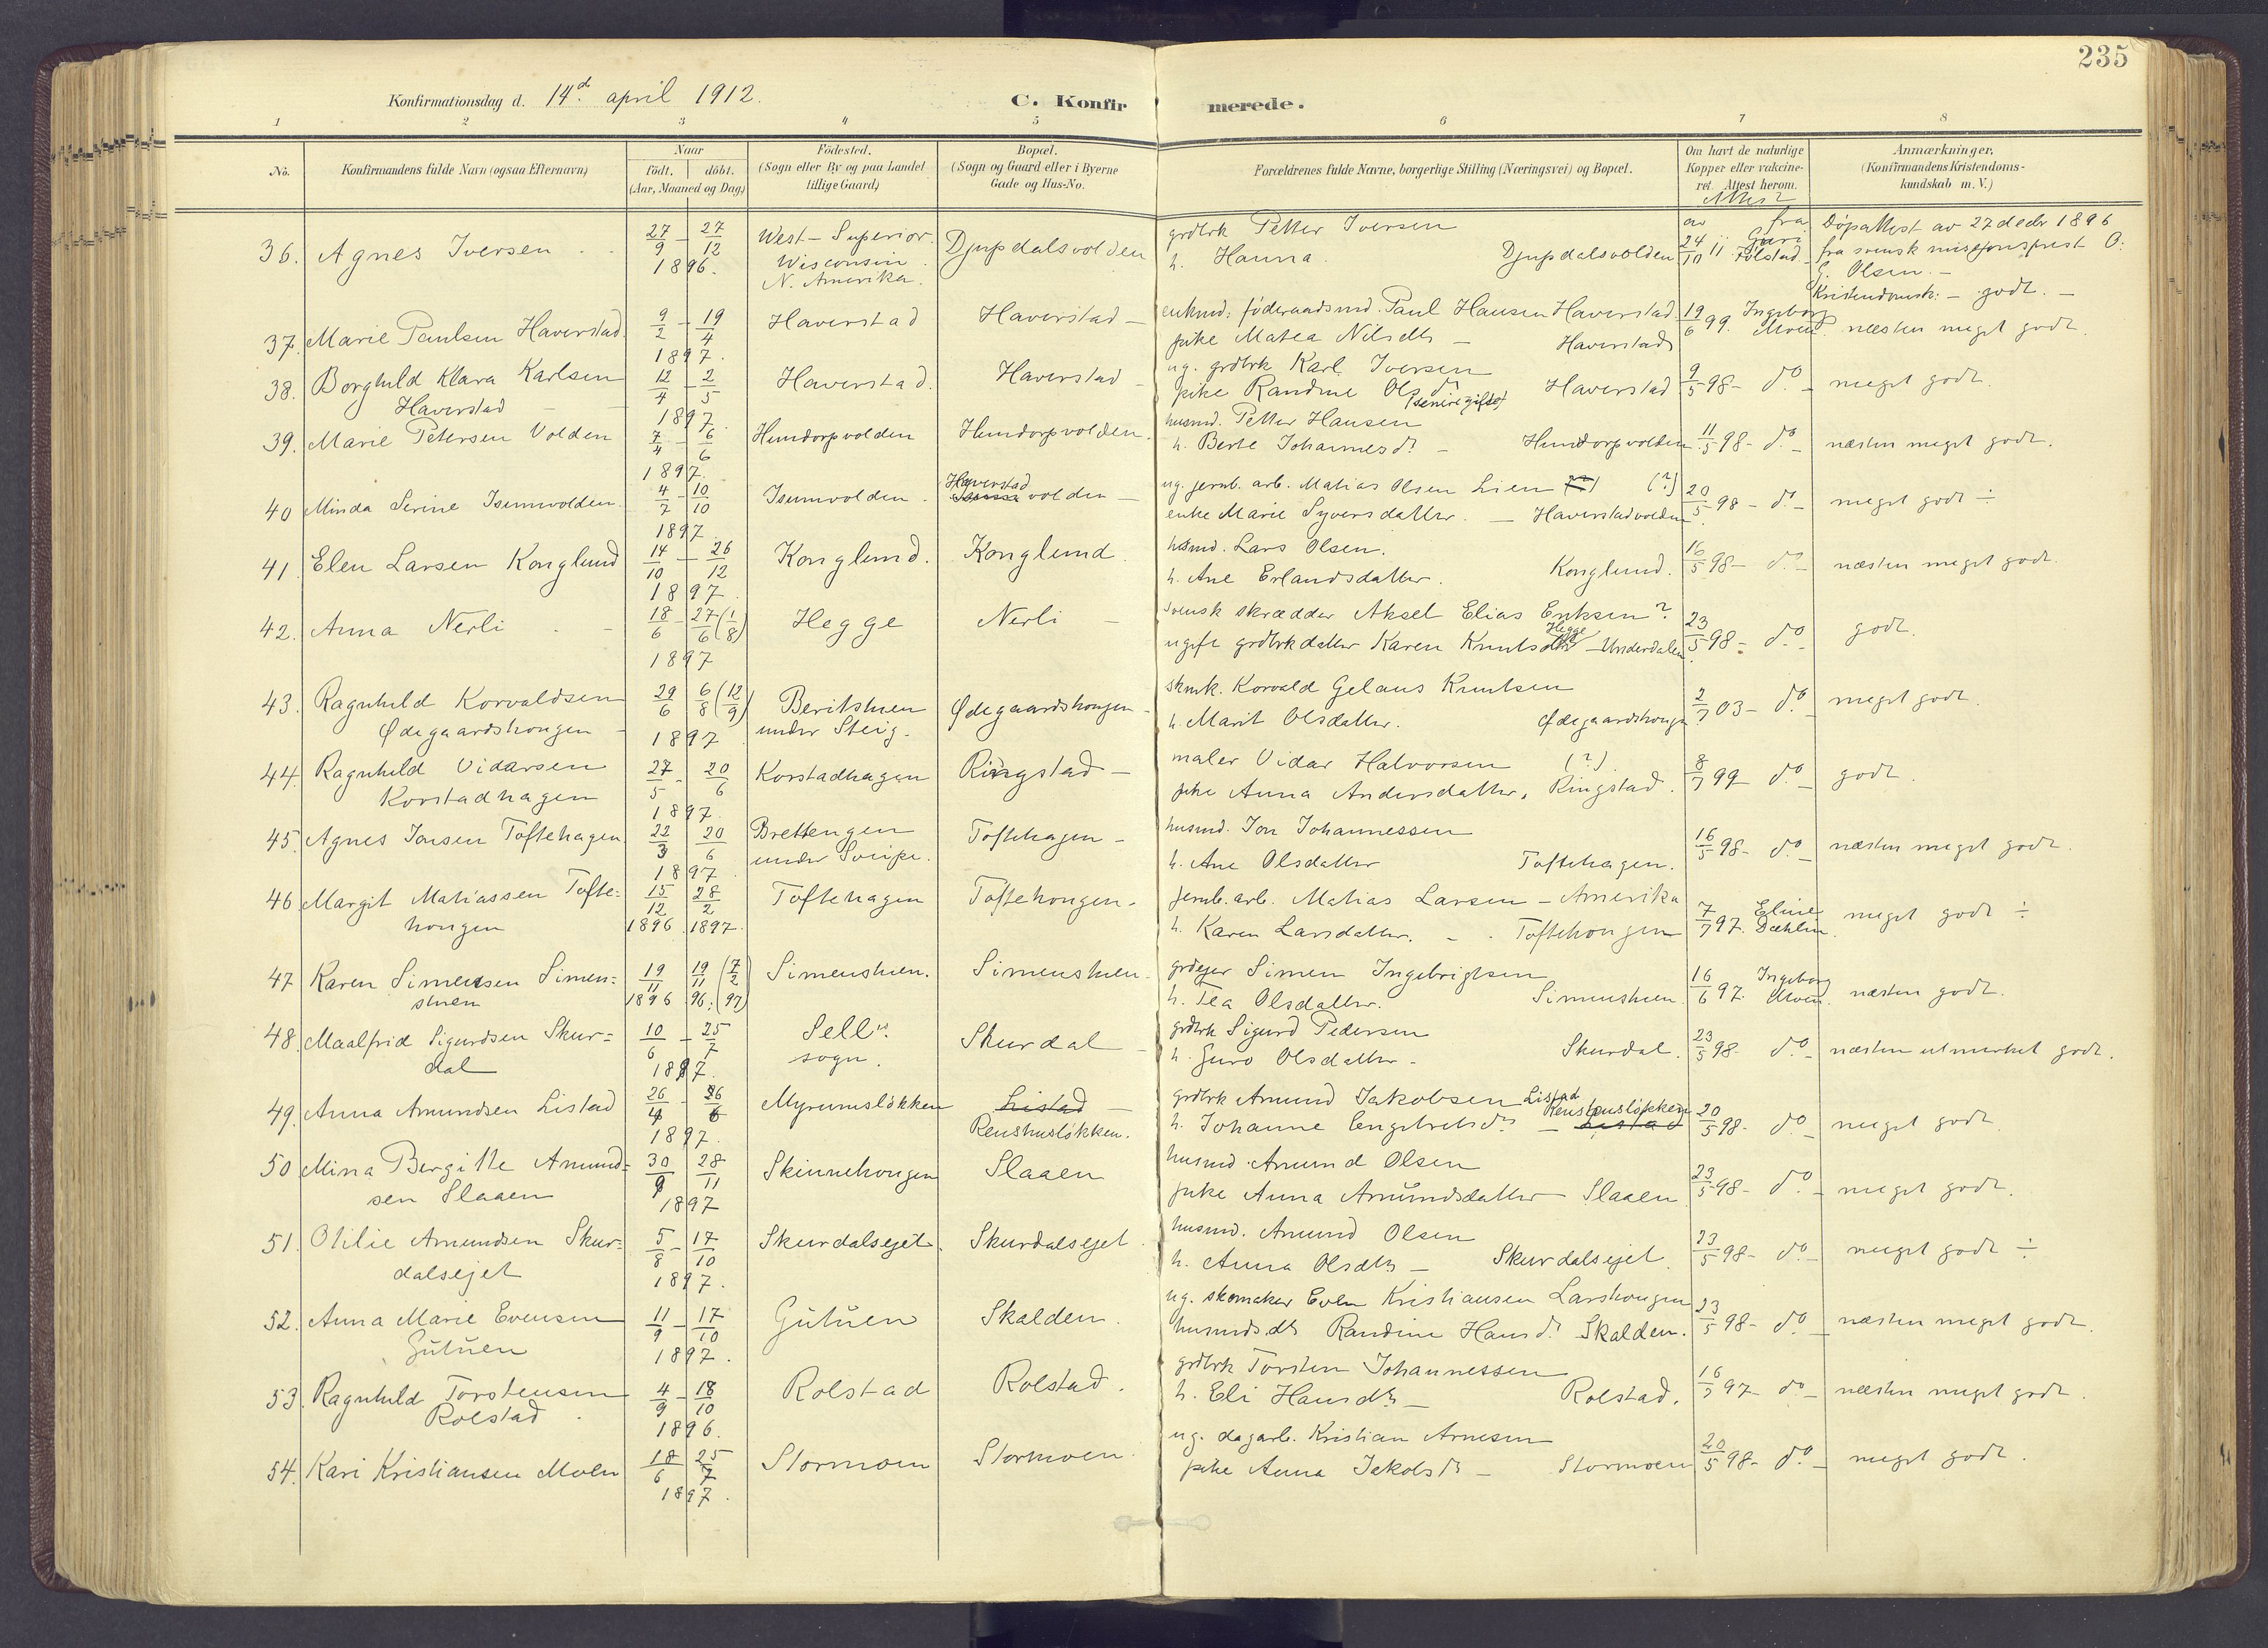 235
Konfirmationsdag d. 14d. april 1912.
C. Konfirmerede.
1 2 3 4 5 6 7 8
No.
Konfirmandens fulde Navn (ogsaa Efternavn)
Naar
født. döbt.
(Aar, Maaned og Dag)
Födested.
(Sogn eller By og paa Landet
tillige Gaard)
Bopæl.
(Sogn og Gaard eller i Byerne
Gade og Hus-No.
Forældrenes fulde Navne, borgerlige Stilling (Næringsvei) og Bopæl.
Om havt de naturlige
Kopper eller vakcine-
ret. Attest herom.
Anmærkninger.
(Konfirmandens Kristendoms-
kundskab m. V.)
36. Agnes Iversen
27/9 - 27/12
1896.
West-Superior.
Wisconsin
N. Amerika.
Djupdalsvolden
grdbrk Petter Iversen
h. Hanna. Djupdalsvolden
av fra
24/10 11
Døpattest av 27 decbr 1896
fra svensk misjonsprest O.
G. Olsen. -
Kristendomsk: - godt. -
37. Marie Paulsen Haverstad
9/2 - 19/4
1897.
Haverstad
Haverstad -
enkmd: föderaadsmd. Paul Hansen Haverstad
pike Matea Nilsdtr - Haverstad
19/6 99. Ingeborg Moen
næsten meget godt.
38. Borghild Klara Karlsen
Haverstad -
12/4 - 2/5
1897.
Haverstad.
Haverstad -
ug. grdbrk Karl Iversen
pike Randine Olsdr (senere gifte) Haverstad
9/5 98 - do -
meget godt.
39. Marie Petersen Volden
7/4 - 6/6
1897.
Hundorpvolden
Hundorpvolden.
husmd. Petter Hansen
h. Berte Johannesdr - Hundorpvolden
11/5 98 - do -
næsten meget godt.
40 Minda Serine Isumvolden.
4/7 - 10/10
1897.
Isumvolden.
Haverstad
volden -
ug. jernb. arb. Matias Olsen Lien (?)
enke Marie Syversdatter. - Haverstadvolden
20/5 98 - do -
meget godt ÷
41. Elen Larsen Konglund
14/10 - 26/12
1897.
Konglund.
Konglund.
husmd. Lars Olsen.
h. Ane Erlandsdatter. Konglund.
16/5 98 - do -
næsten meget godt.
42. Anna Nerli -
18/6 27/6 (1/8)
1897
Hegge
Nerli -
svensk skrædder Aksel Elias Eriksen?
ugift grdbrkdatter Karen Knutsdtr Hegge - Underdalen
23/5 98 - do -
godt.
43. Ragnhild Korvaldsen
Ødegaardshongen -
29/6 6/8 (12/9)
1897
Beritstuen
under Steig.
Ødegaardshongen -
skmk. Korvald Gelaus Knutsen
h. Marit Olsdatter. Ødegaardshongen
2/7 03 - do -
meget godt.
44. Ragnhild Vidarsen
Korstadhagen
27/5 - 20/6
1897.
Korstadhagen
Ringstad -
maler Vidar Halvorsen (?).
pike Anna Andersdatter, Ringstad.
8/7 99 - do -
godt.
45. Agnes Jonsen Toftehagen
22/3 20/6
1897.
Brettengen
under Sveipe.
Toftehagen -
husmd. Jon Johannessen
h. Ane Olsdatter Toftehagen.
16/5 98 - do -
næsten meget godt.
46 Margit Matiassen Tofte=
hongen
15/12 28/2
1896. 1897.
Toftehagen
Toftehongen.
jernb. arb. Matias Larsen - Amerika
h. Karen Larsdatter. - Toftehongen
7/7 97. Eline Dæhlin.
meget godt ÷
47 Karen Simensen Simen=
stuen
19/11 19/11 (7/2)
1896 96. (97)
Simenstuen.
Simenstuen -
grdejer Simen Ingebrigtsen
h. Tea Olsdatter. Simenstuen.
16/6 97. Ingeborg Moen.
næsten godt.
48. Maalfrid Sigurdsen Skur=
dal
10/6 - 25/7
1897.
Sells
sogn.
Skurdal -
grdbrk Sigurd Pedersen
h. Guro Olsdatter - Skurdal.
23/5 98 - do -
næsten utmerket godt.
49. Anna Amundsen Listad
26/4 - 26/6
1897.
Myrumsløkken
Listad -
Reushusløkken.
grdbrk Amund Jakobsen Listad
Reushusløkken
h. Johanne Engebretsdr - Listad
20/5 98 - do -
meget godt.
50 Mina Bergitte Amund=
sen Slaaen
30/9 28/11
1897
Skinnehongen
Slaaen
husmd. Amund Olsen
pike Anna Amundsdatter - Slaaen
23/5 98 - do -
meget godt.
51. Otilie Amundsen Skur=
dalsejet
5/8 - 17/10
1897.
Skurdalsejet.
Skurdalsejet.
husmd. Amund Olsen
h. Anna Olsdtr - Skurdalsejet.
23/5 98 - do -
meget godt ÷
52. Anna Marie Evensen
Gutuen
11/9 - 17/10
1897.
Gutuen
Skalden.
ug. skomaker Even Kristiansen Larshongen
husmdsdtr Randine Hansdr Skalden.
23/5 98 - do -
næsten meget godt.
53. Ragnhild Torstensen
Rolstad.
4/9 - 18/10
1896.
Rolstad
Rolstad.
grdbrk Torsten Johannessen
h. Eli Hansdtr - Rolstad.
16/7 97 - do -
næsten meget godt.
54. Kari Kristiansen Moen
18/6 25/7
1897.
Stormoen
Stormoen.
ug. dagarb. Kristian Arnesen
pike Anna Jakobsdr - Stormoen
20/5 98 - do -
meget godt.